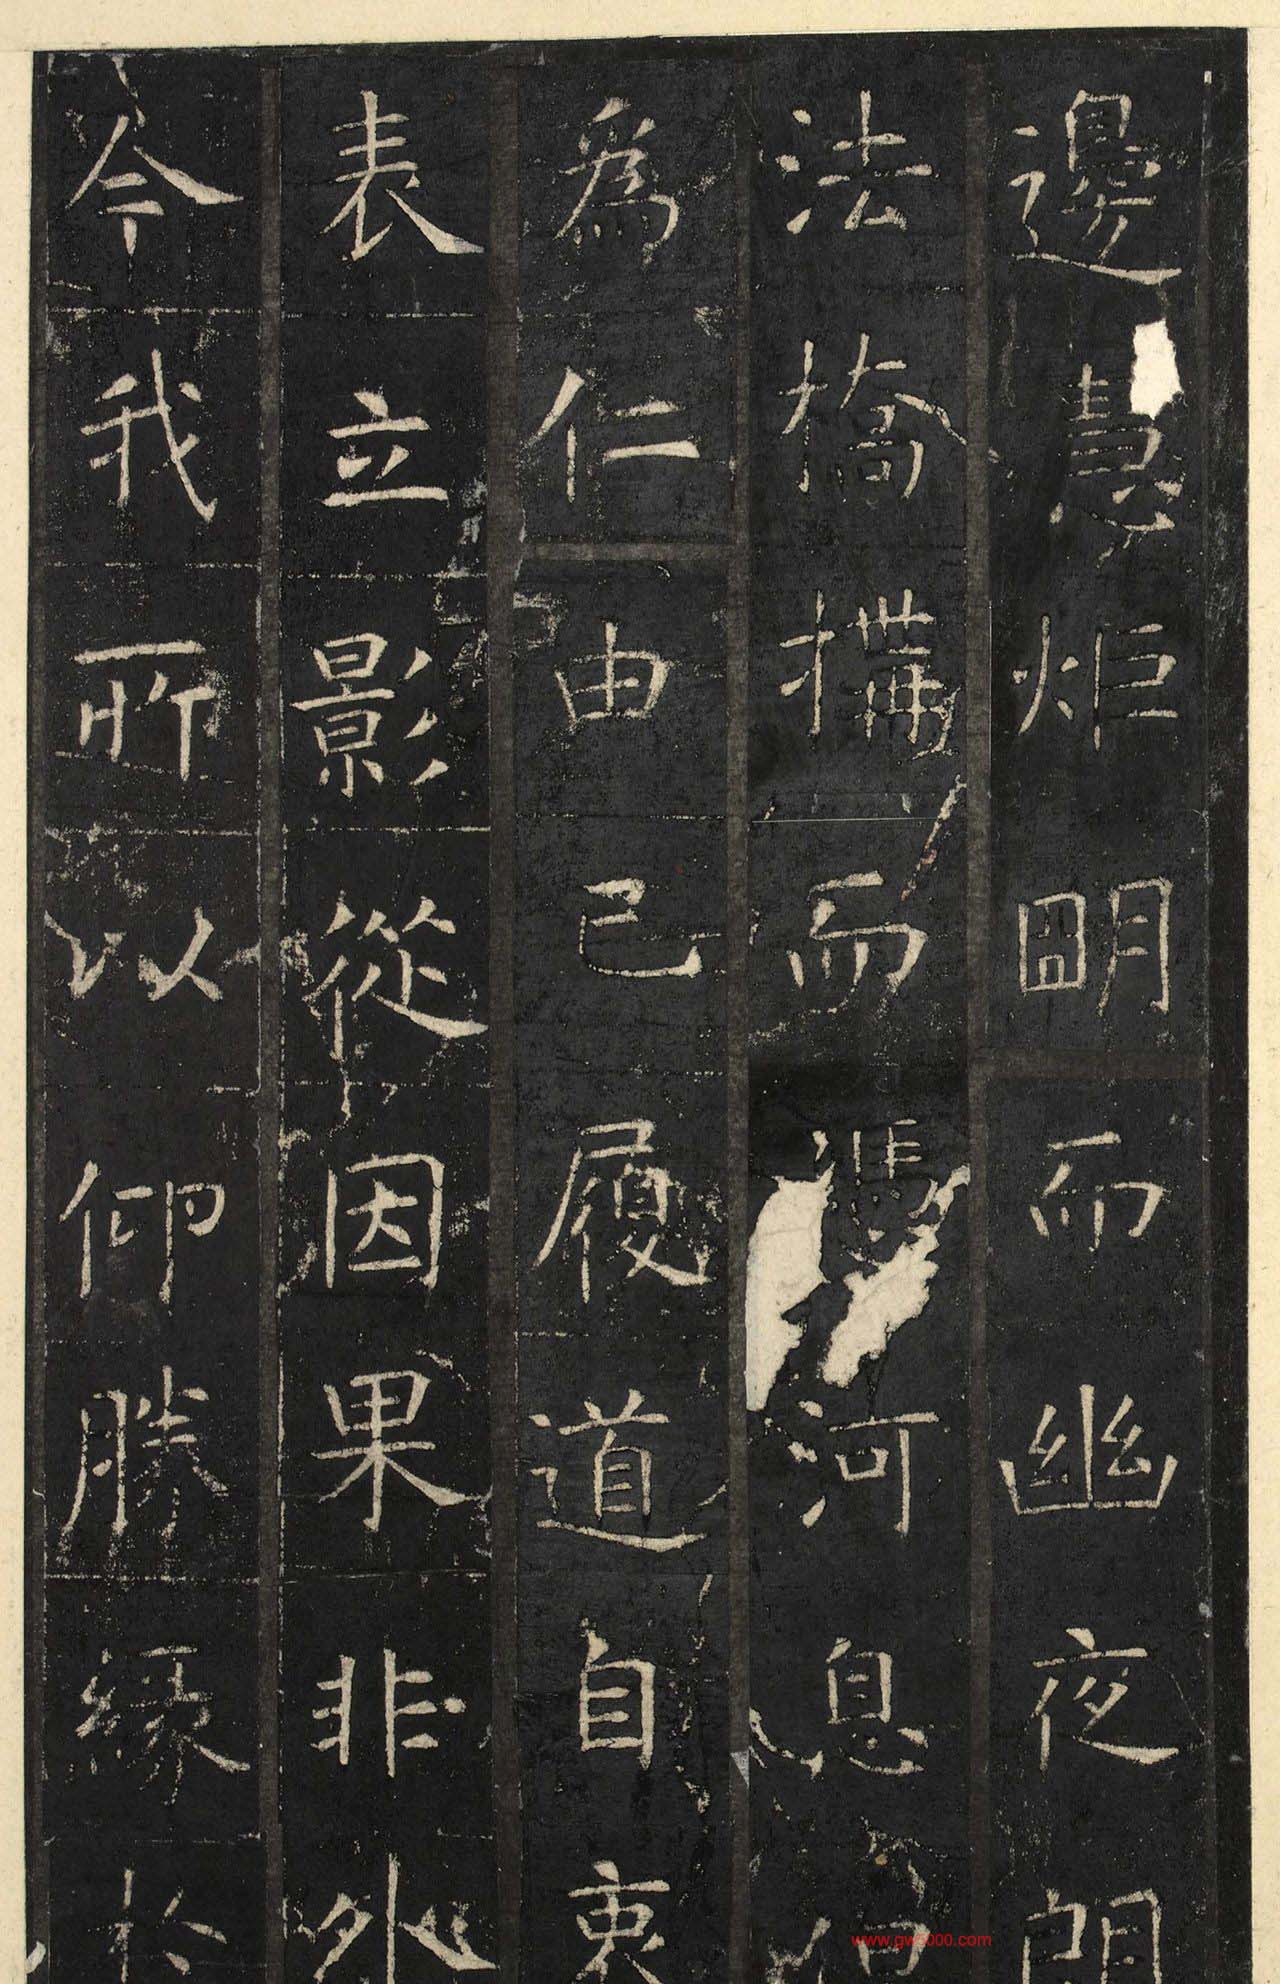 邊慧炬明而幽夜朗
法橋搆而馮河息
為仁由己履道自衷
表立影從因果非外
今我所以仰勝緣於
www.gw3000.com